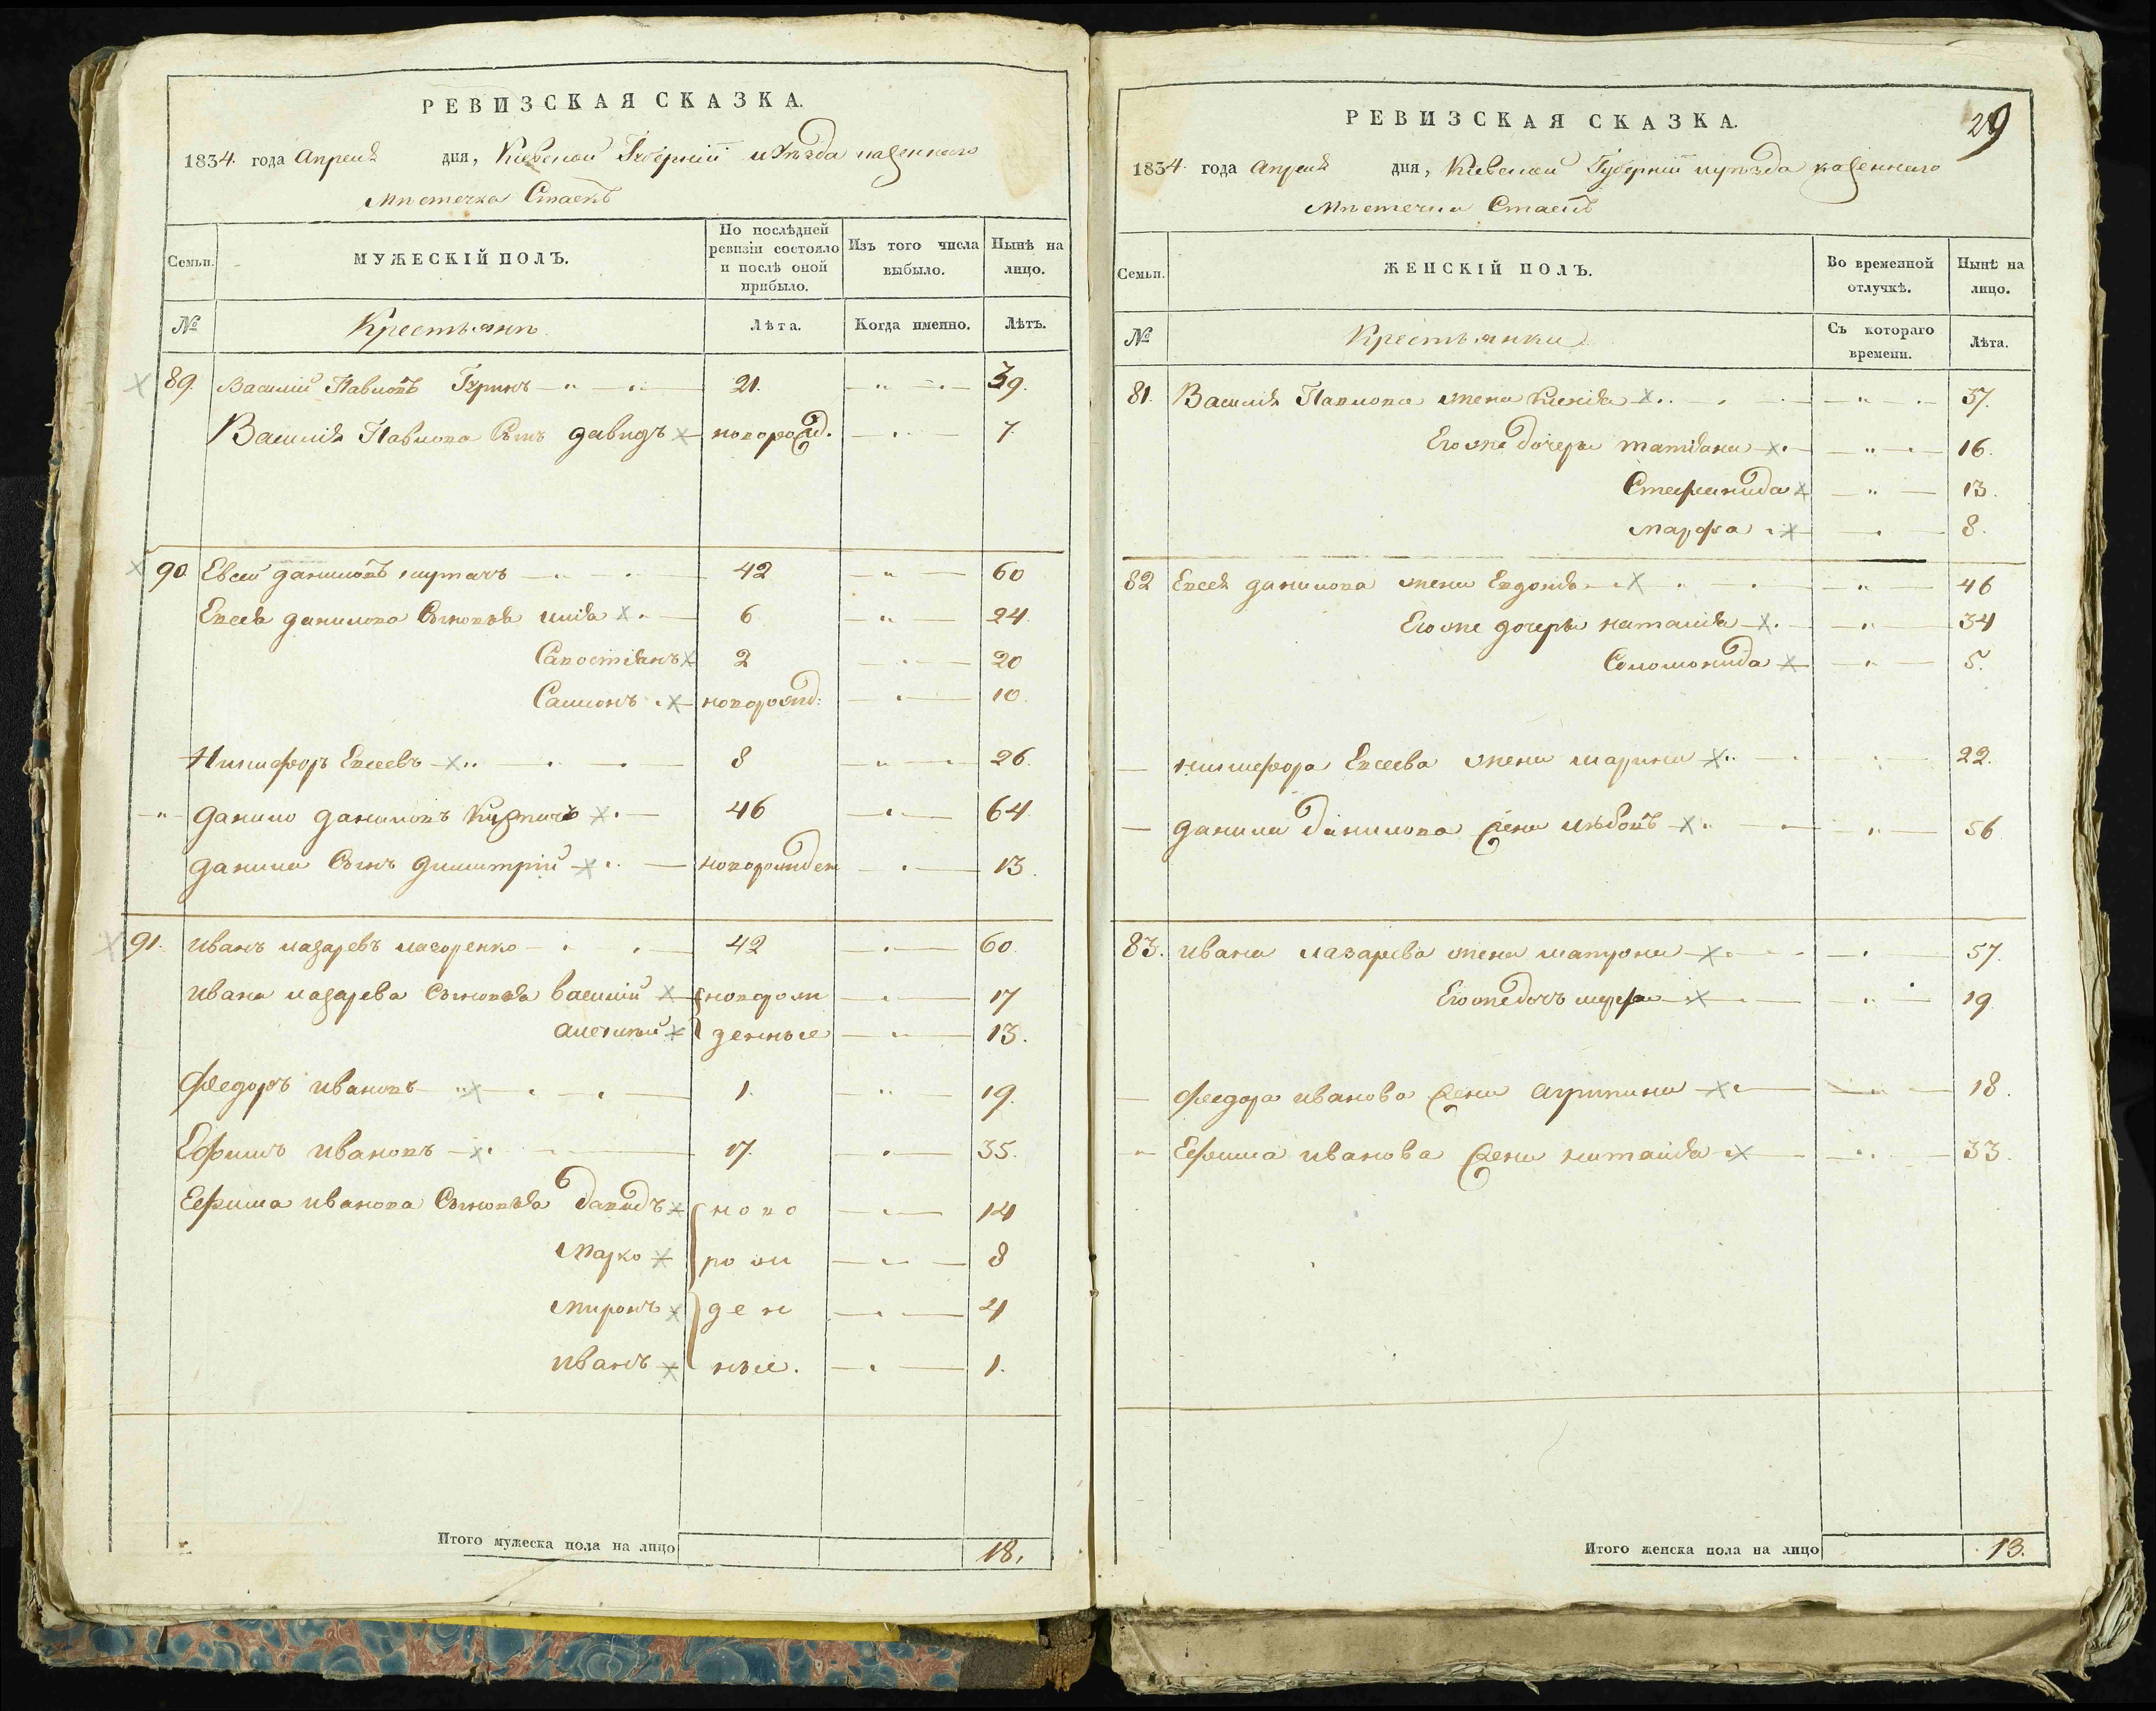 РЕВИЗСКАЯ СКАЗКА.
1834. года Апреля дня, Киевской Губернии и уѣзда казеннаго
Мѣстечка Стаекъ
Семьи.
МУЖЕСКІЙ ПОЛЪ.
По послѣдней ревизіи состояло и послѣ оной прибыло.
Изъ того числа выбыло.
Нынѣ на лицо.
№
Крестьянъ
Лѣта.
Когда именно.
Лѣтъ.
89. Василий Павловъ 21. 39.
Василія Павлова Сынъ давидъ новорожд. 7.
90 Евсей даниловъ 42 60
Евсея данилова Сыновья илія 6 24
Савостіянъ 2 20
Самсонъ новорожд: 10.
Никифоръ Евсеевъ 8 26.
данило даниловъ 46 64
данила Сынъ димитрій новорожден 13.
91. иванъ лазаревъ 42 60.
ивана лазарева Сыновья василий новорож 17
алексѣй денные 13.
Федоръ ивановъ 1. 19.
Ефимъ ивановъ 17. 35.
Ефима иванова Сыновья давидъ ново 14
Марко рож 8
Миронъ ден 4
иванъ ные. 1.
Итого мужеска пола на лицо 18.
РЕВИЗСКАЯ СКАЗКА.
29
1834. года Апреля дня, Киевской Губерніи и уѣзда казеннаго
Мѣстечка Стаекъ
Семьи.
ЖЕНСКІЙ ПОЛЪ.
Во временной отлучкѣ.
Нынѣ на лицо.
№
Крестьянки
Съ котораго времени.
Лѣта.
81. Василія Павлова жена Ксенія 37.
Его же дочери татіана 16.
Стефанида 13.
марфа 8.
82 Евсея данилова жена Евдокія 46
Его же дочери наталія 34
Соломонида 5.
никифора Евсеева жена марина 22.
данила данилова жена любовъ 56
83. ивана лазарева жена матрона 57.
Его же дочь 19.
федора иванова жена агрипина 18.
Ефима иванова жена наталія 33.
Итого женска пола на лицо 13.